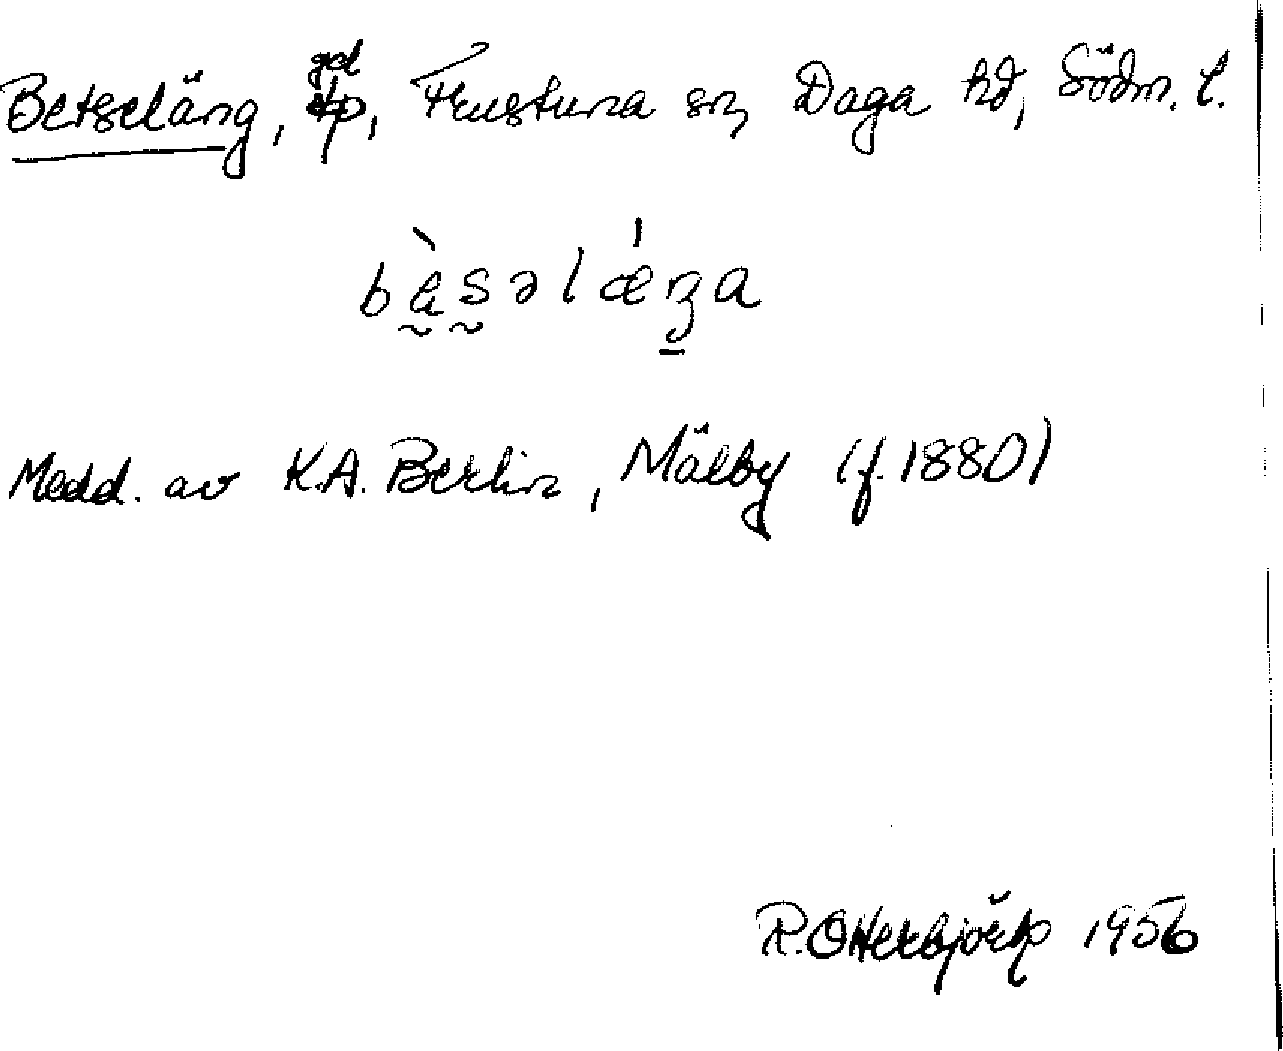 Betseläng, gd, Frustuna sn, Daga hd, Södm. l.
bèsəlǽŋa
Medd. av K.A. Berlin, Mälby (f. 1880)
R. Otterbjörk 1956